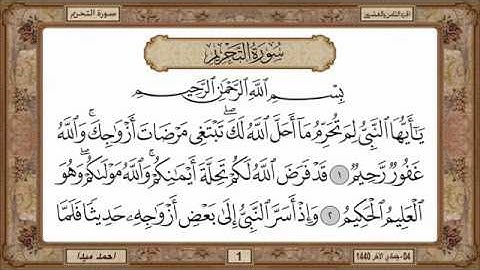 الجزء الثامن والعشرين
سورة التحريم
سُورَةُ التَّحْرِيمِ
بِسْمِ اللَّهِ الرَّحْمَٰنِ الرَّحِيمِ
يَا أَيُّهَا النَّبِيُّ لِمَ تُحَرِّمُ مَا أَحَلَّ اللَّهُ لَكَ ۖ تَبْتَغِي مَرْضَاتَ أَزْوَاجِكَ ۚ وَاللَّهُ
غَفُورٌ رَّحِيمٌ ١ قَدْ فَرَضَ اللَّهُ لَكُمْ تَحِلَّةَ أَيْمَانِكُمْ ۚ وَاللَّهُ مَوْلَاكُمْ ۖ وَهُوَ
الْعَلِيمُ الْحَكِيمُ ٢ وَإِذْ أَسَرَّ النَّبِيُّ إِلَىٰ بَعْضِ أَزْوَاجِهِ حَدِيثًا فَلَمَّا
04 - جمادي الآخر 1440
1